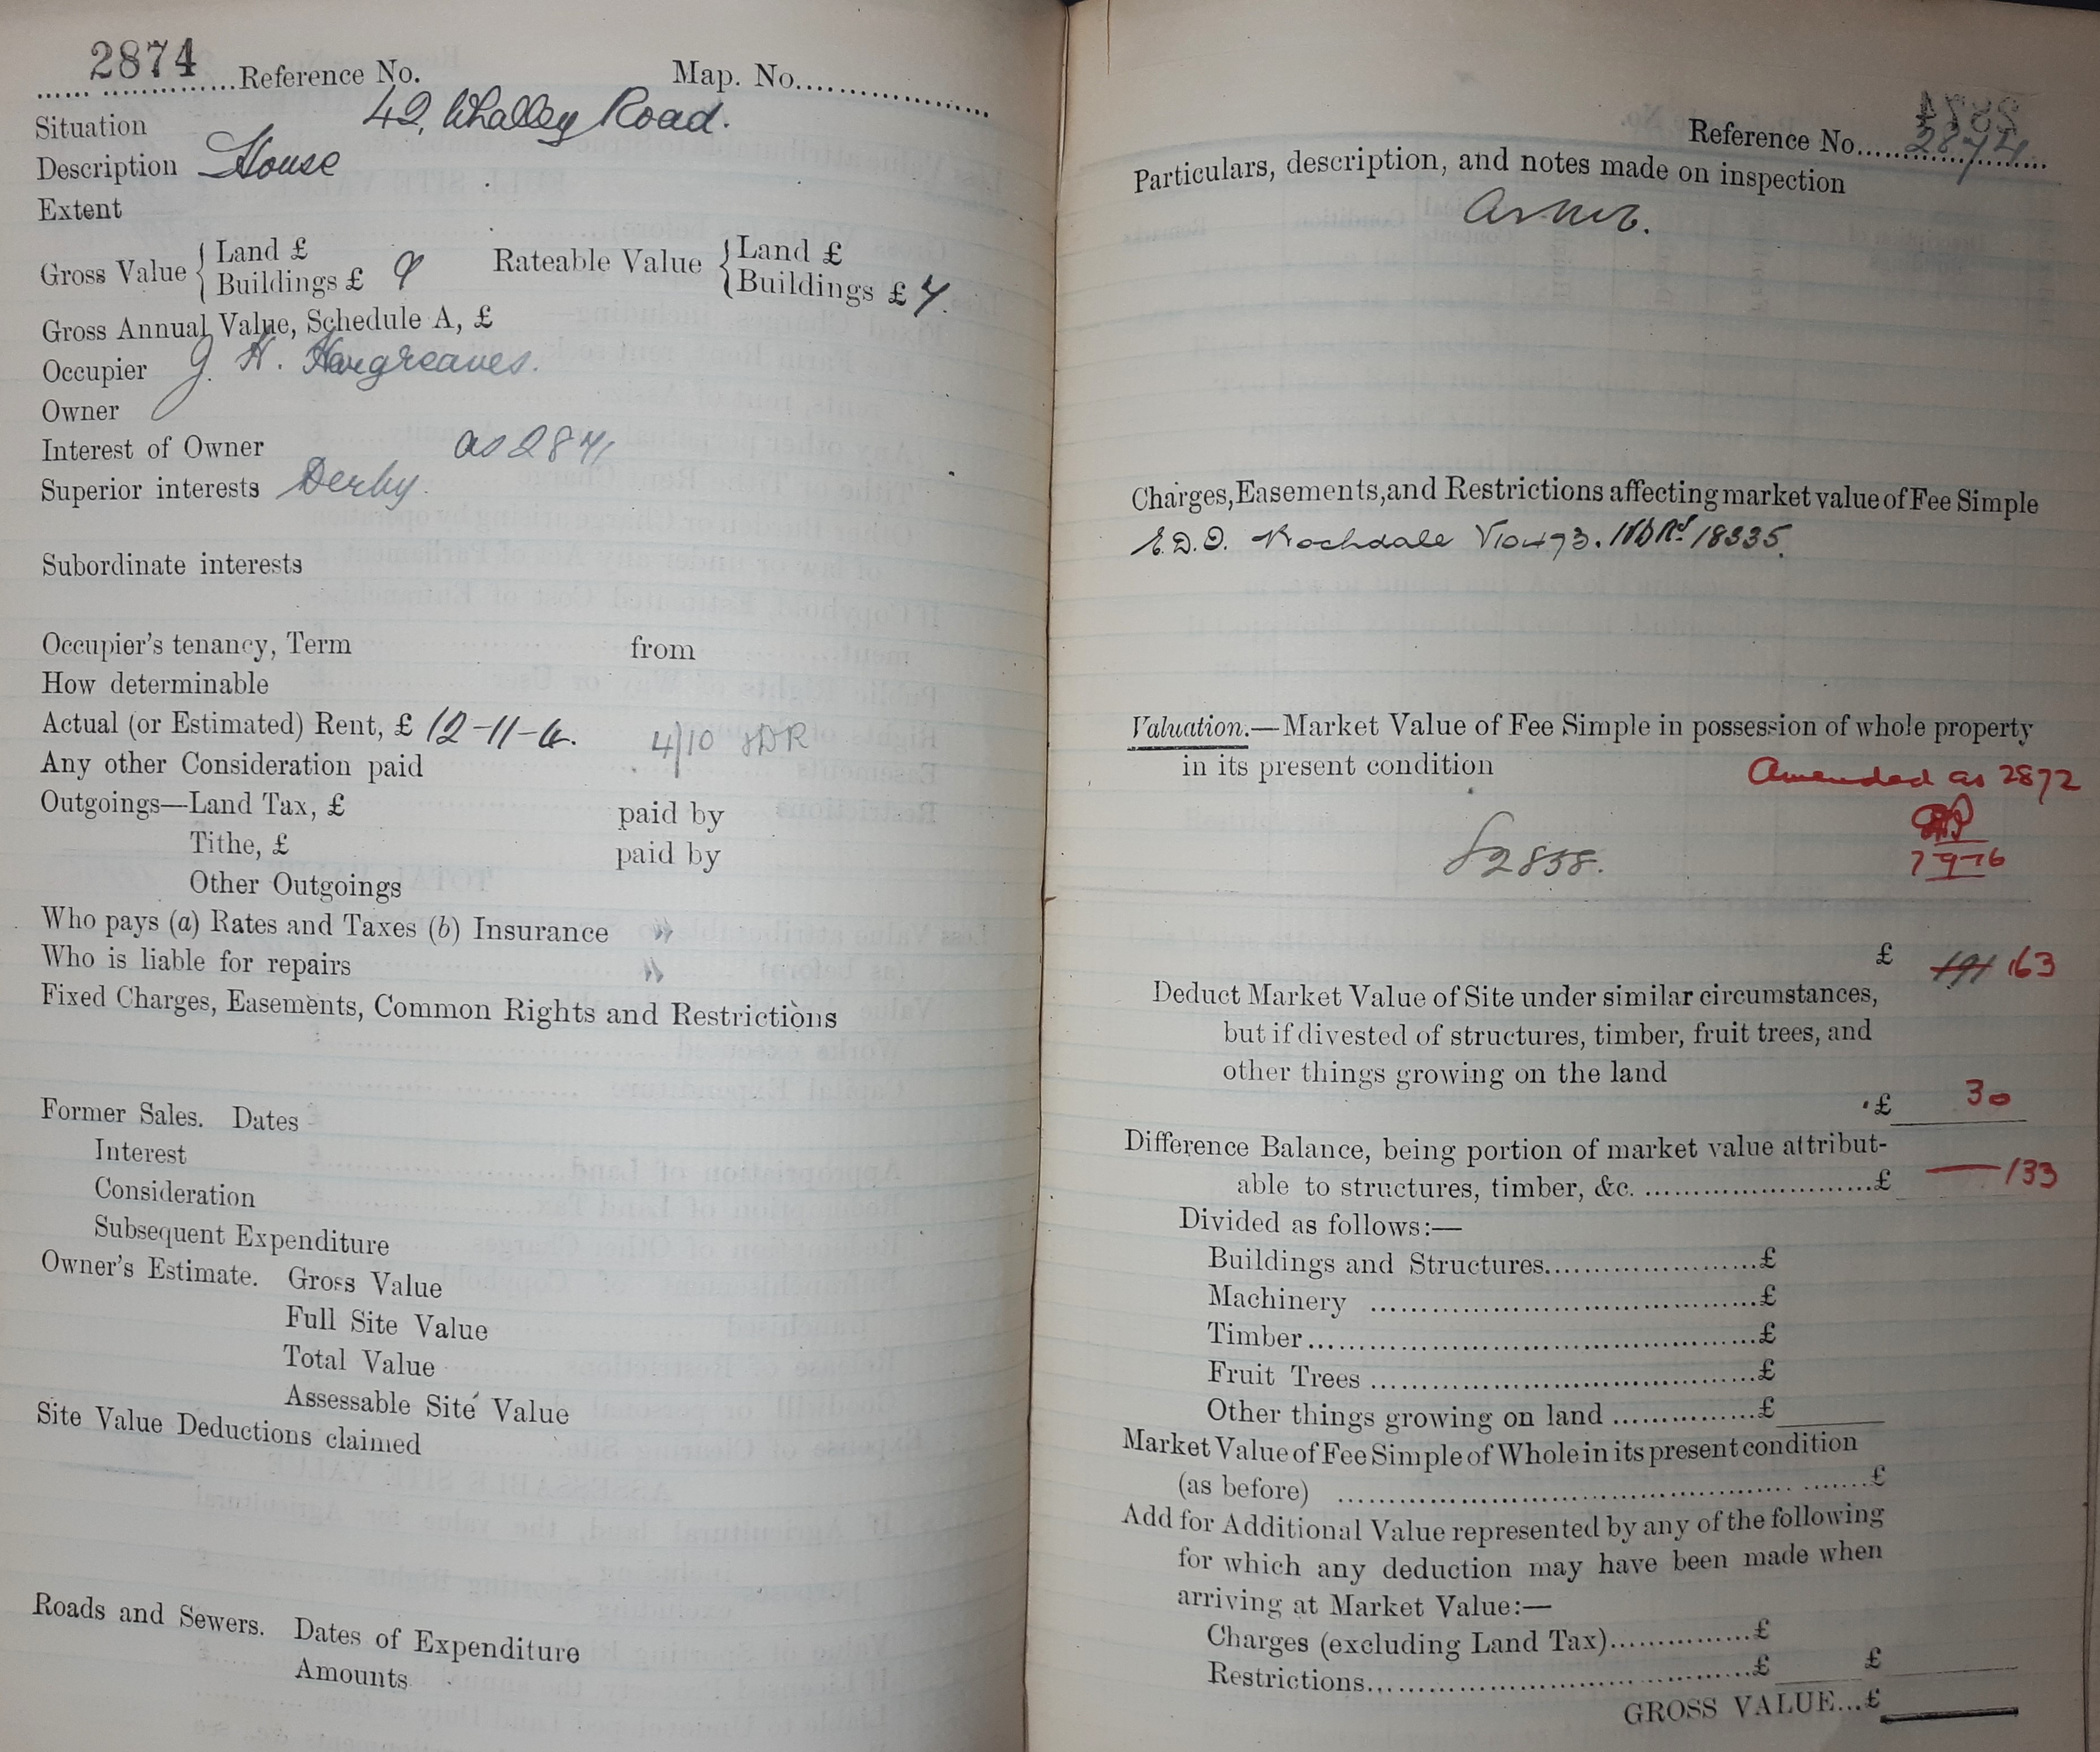 2874 Reference No. Map. No.
Situation 42, Whalley Road.
Description House
Extent
Gross Value { Land £
Buildings £ 9
Rateable Value { Land £
Buildings £ 7.
Gross Annual Value, Schedule A, £
Occupier J. H. Hargreaves.
Owner
Interest of Owner as 2871
Superior interests Derby.
Subordinate interests
Occupier's tenancy, Term from
How determinable
Actual (or Estimated) Rent, £ 12-11-4. 4/10
Any other Consideration paid
Outgoings—Land Tax, £ paid by
Tithe, £ paid by
Other Outgoings
Who pays (a) Rates and Taxes (b) Insurance "
Who is liable for repairs "
Fixed Charges, Easements, Common Rights and Restrictions
Former Sales. Dates
Interest
Consideration
Subsequent Expenditure
Owner's Estimate. Gross Value
Full Site Value
Total Value
Assessable Site Value
Site Value Deductions claimed
Roads and Sewers. Dates of Expenditure
Amounts
Reference No. 2874
Particulars, description, and notes made on inspection
Charges, Easements, and Restrictions affecting market value of Fee Simple
Rochdale 18335.
Valuation.—Market Value of Fee Simple in possession of whole property
in its present condition
Amended as 2872
7-9-16
£ 191 163
Deduct Market Value of Site under similar circumstances,
but if divested of structures, timber, fruit trees, and
other things growing on the land
£ 30
Difference Balance, being portion of market value attribut-
able to structures, timber, &c. £ 133
Divided as follows:—
Buildings and Structures £
Machinery £
Timber £
Fruit Trees £
Other things growing on land £
Market Value of Fee Simple of Whole in its present condition
(as before) £
Add for Additional Value represented by any of the following
for which any deduction may have been made when
arriving at Market Value:—
Charges (excluding Land Tax) £
Restrictions £ £
GROSS VALUE...£